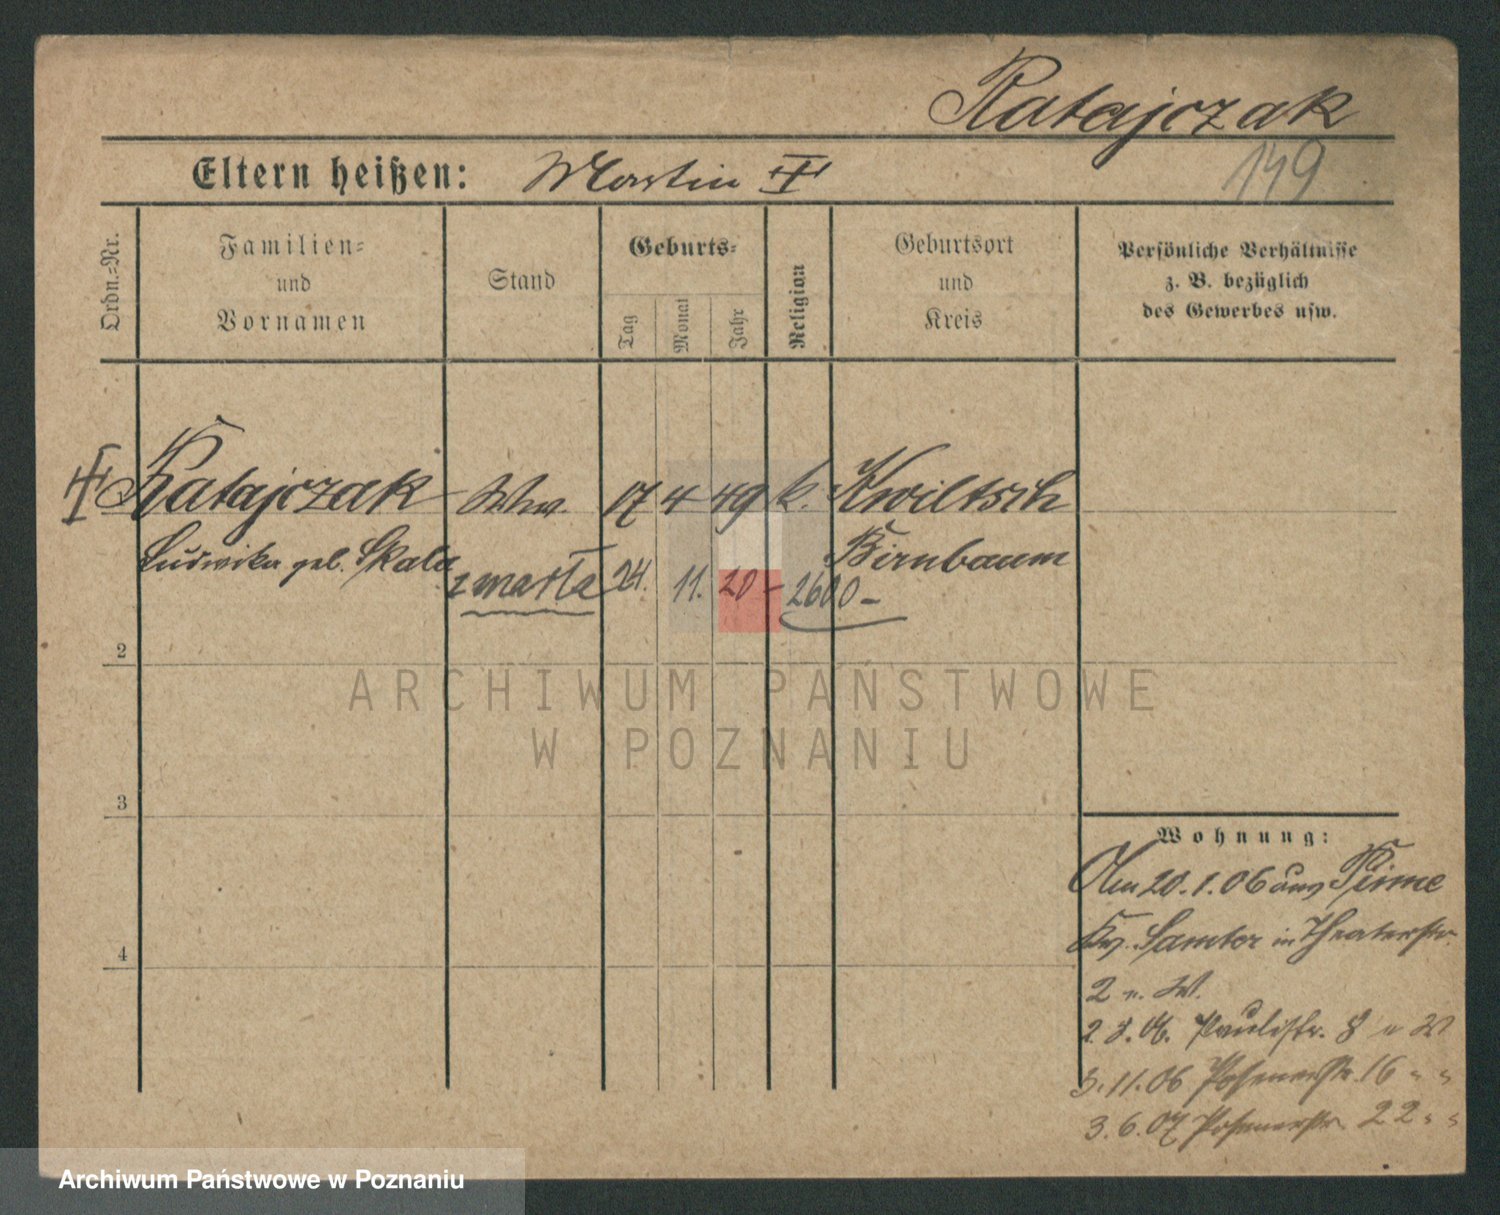 Ratajczak
149
Eltern heißen: Martin
Ordn.=Nr.
Familien=
und
Vornamen
Stand
Geburts=
Tag
Monat
Jahr
Religion
Geburtsort
und
Kreis
Persönliche Verhältnisse
z. B. bezüglich
des Gewerbes usw.
Ratajczak Ww. 17 4 49 k. Kwiltsch
Ludwika geb. Skala Birnbaum
zmarła 24. 11. 20 – 2600 –
2
ARCHIWUM PAŃSTWOWE
W POZNANIU
3
4
Wohnung:
Am 20.1.06 aus Pinne
Kr. Samter in Theaterstr.
2 n. W.
2.8.06. Paulistr. 8 n W
3.11.06 Posenerstr. 16 " "
3.6.07 Posenerstr. 22 " "
Archiwum Państwowe w Poznaniu